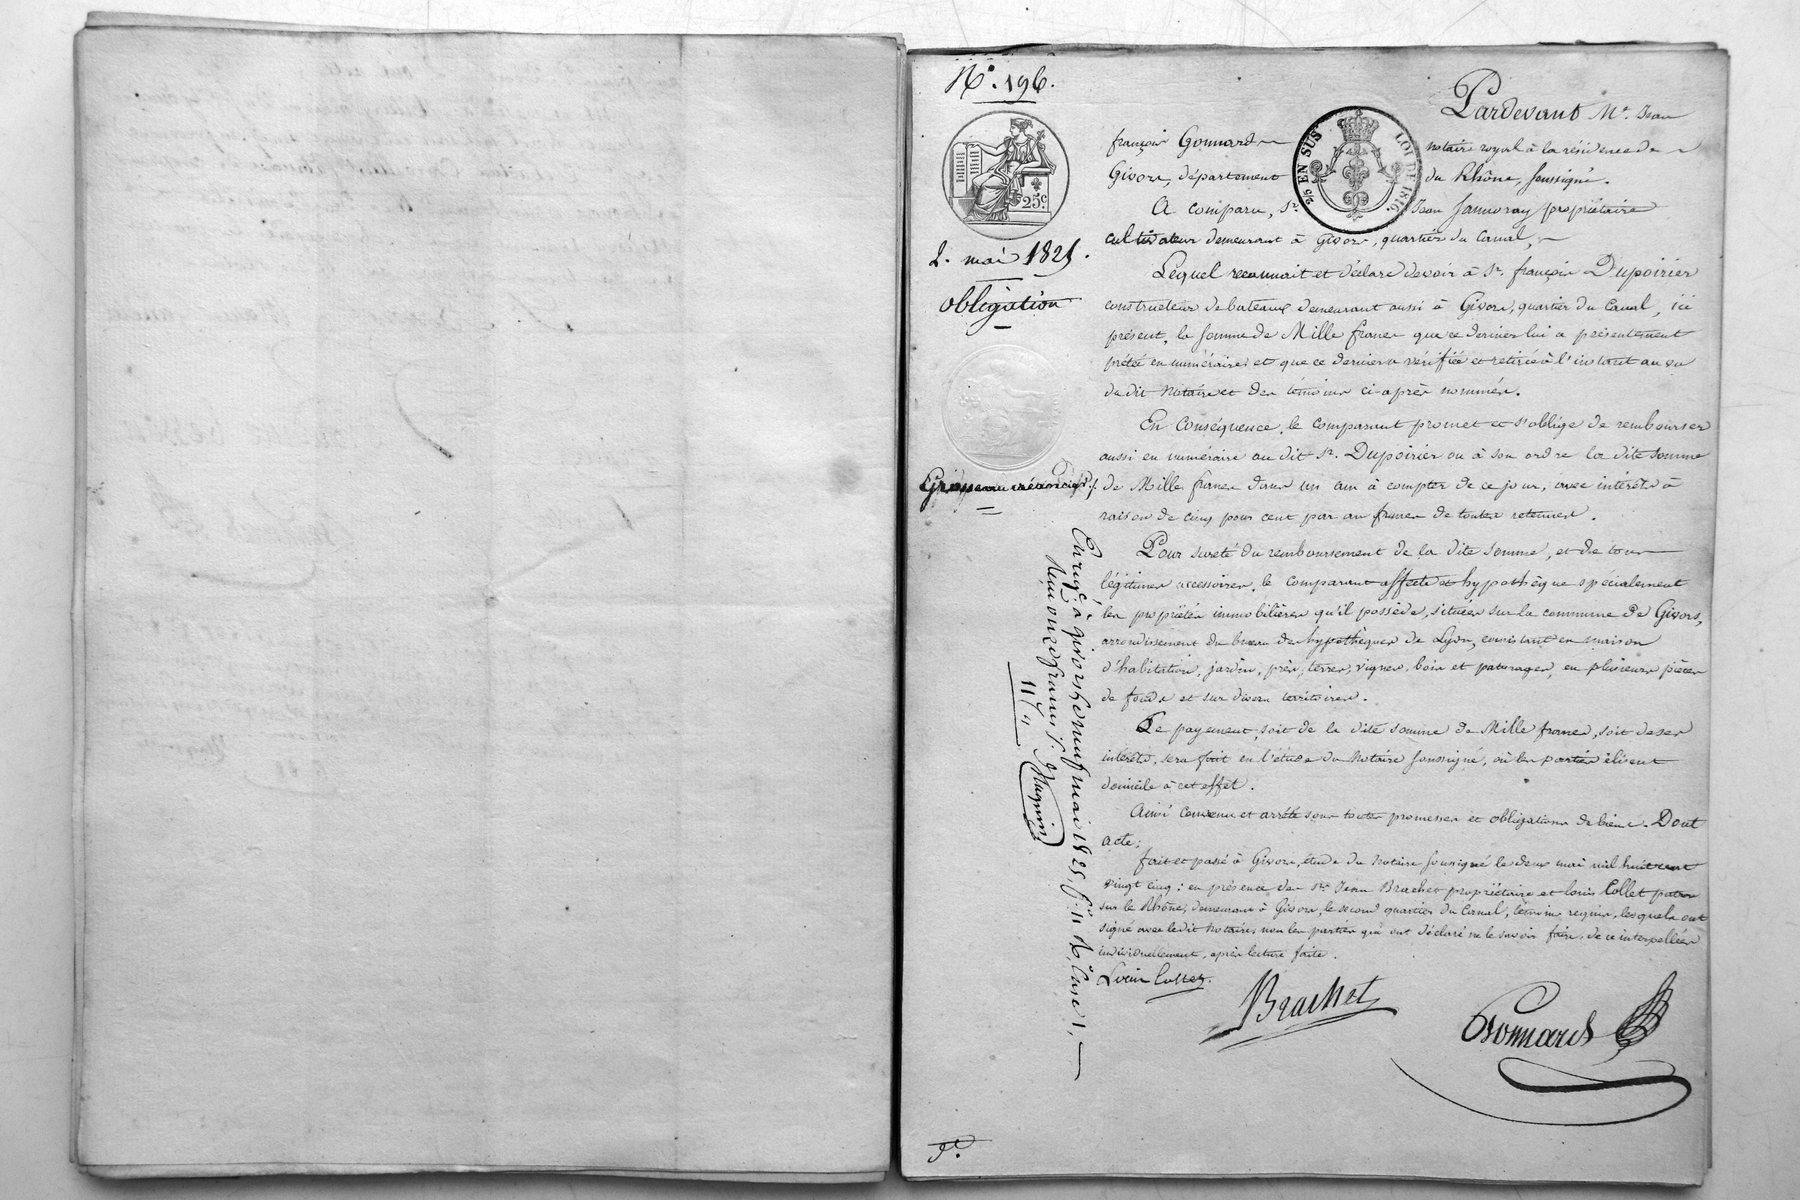 N°. 196.
25c
2. mai 1825.
obligation
Grosse au créancier /.
2/5 EN SUS LOI DE 1816.
Pardevant Me. Jean
françois Gonnard notaire royal à la résidence de
Givors, département du Rhône, soussigné.
A comparu, Sr. Jean Jamoray propriétaire
cultivateur demeurant à Givors, quartier du Canal,
Lequel reconnait et déclare devoir à Sr. françois Dupoirier
constructeur de bateaux demeurant aussi à Givors, quartier du Canal, ici
présent, la somme de Mille francs que ce dernier lui a présentement
prêtée en numéraire et que ce dernier a vérifiée et retirée à l'instant au vu
du dit Notaire et des témoins ci-après nommés.
En Conséquence, le comparant promet et s'oblige de rembourser
aussi en numéraire au dit Sr. Dupoirier ou à son ordre la dite somme
de Mille francs dans un an à compter de ce jour, avec intérêts à
raison de cinq pour cent par an francs de toutes retenues.
Pour sureté du remboursement de la dite somme, et de tous
légitimes accessoires, le comparant affecte et hypothèque spécialement
les propriétés immobilières qu'il possède, situées sur la commune de Givors,
arrondissement du bureau des hypothèques de Lyon, consistant en maison
d'habitation, jardin, prés, terres, vignes, bois et paturages, en plusieurs pièces
de fonds et sur divers territoires.
Le payement, soit de la dite somme de Mille francs, soit de ses
intérêts, sera fait en l'étude du Notaire soussigné, où les parties élisent
domicile à cet effet.
Ainsi Convenu et arrêté sous toutes promesses et obligations de biens. Dont
acte;
fait et passé à Givors, étude du Notaire soussigné le deux mai mil huit cent
vingt cinq; en présence des Srs. Jean Brachet propriétaire et louis Collet patron
sur le Rhône, demeurant à Givors, le second quartier du Canal, témoins requis, lesquels ont
signé avec le dit Notaire, non les parties qui ont déclaré ne le savoir faire, de ce interpellées
individuellement, après lecture faite.
Louis Collet. Brachet Gonnard
Enregé. à givors le neuf mai 1825, f° 11 R° Case 1,
Reçu onze francs
11 f